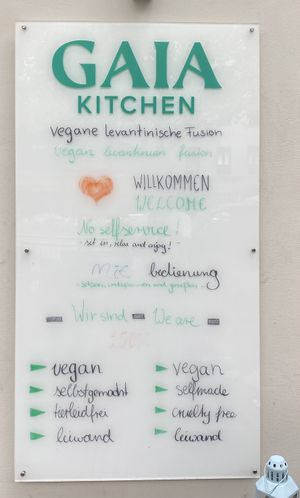 GAIA
KITCHEN
Vegane levantinische Fusion
Vegan levantinien fusion
WILLKOMMEN
WELCOME
No selfservice!
- sit in, relax and enjoy! -
Mit bedienung
- setzen, entspannen und genießen -
- Wir sind - We are -
100%
vegan vegan
selbstgemacht selfmade
tierleidfrei cruelty free
leiwand leiwand